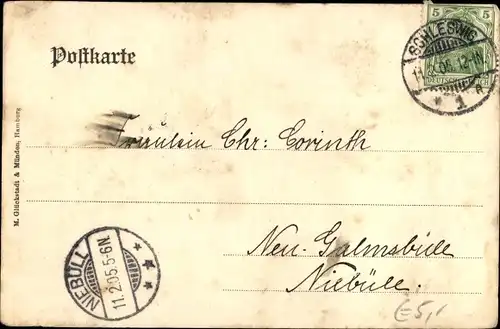 5 5
SCHLESWIG
DEUTSCHES REICH
* 1 a
Postkarte
Fräulein Chr: Corinth
M. Glückstadt & Münden, Hamburg
NIEBÜLL
11.2.05.5-6N.
Neu-Galmsbüll
Niebüll.
€ 5,-